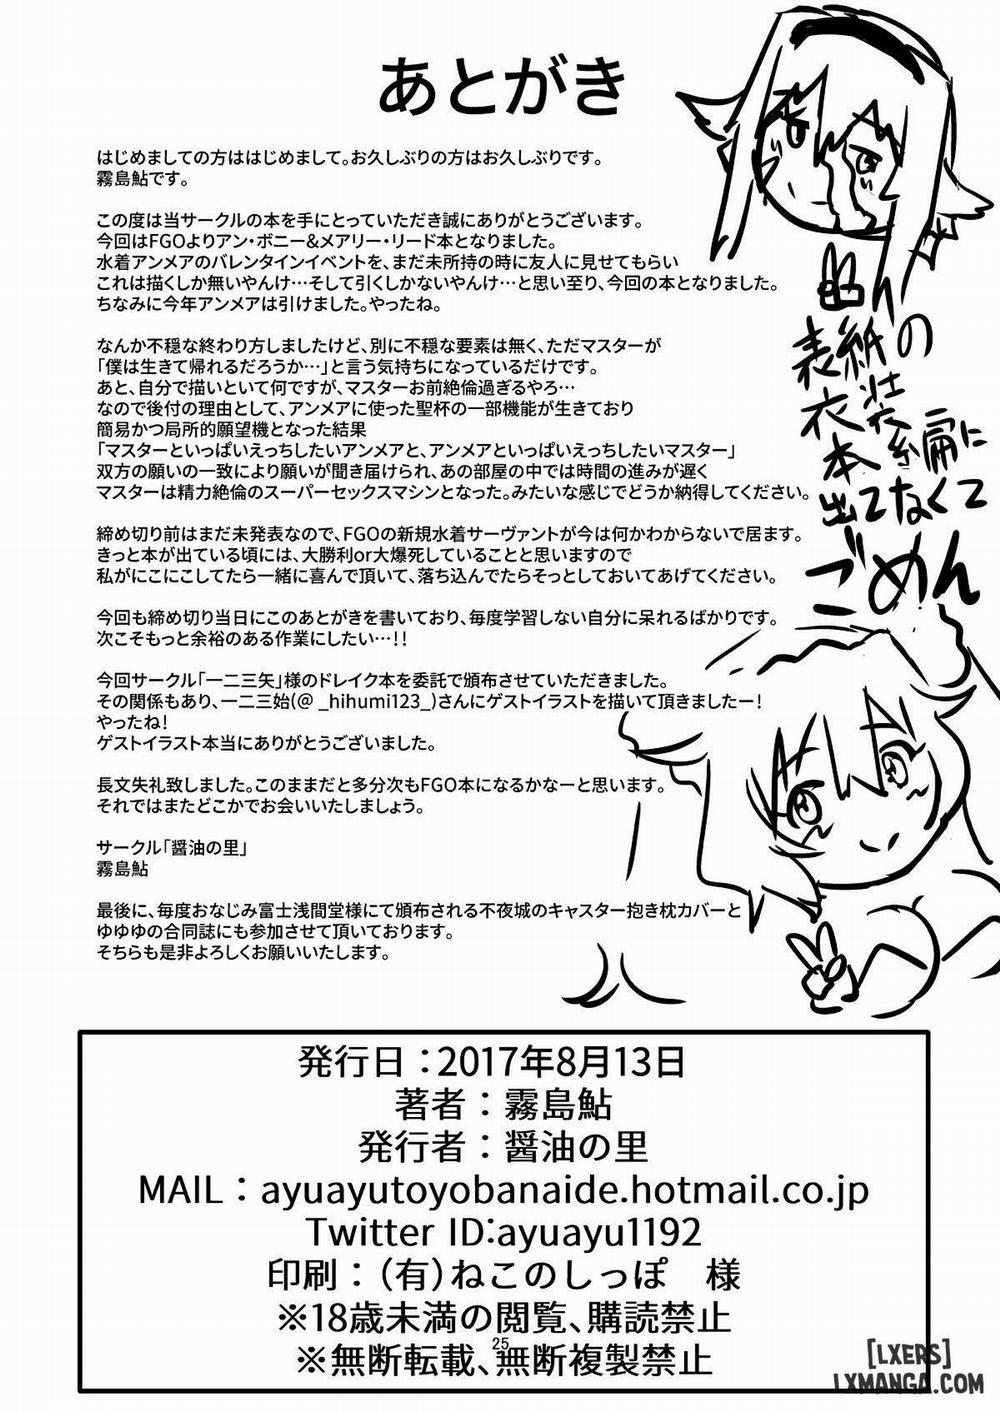 あとがき
はじめましての方ははじめまして。お久しぶりの方はお久しぶりです。
霧島鮎です。
この度は当サークルの本を手にとっていただき誠にありがとうございます。
今回はFGOよりアン・ボニー&メアリー・リード本となりました。
水着アンメアのバレンタインイベントを、まだ未所持の時に友人に見せてもらい
これは描くしか無いやんけ…そして引くしかないやんけ…と思い至り、今回の本となりました。
ちなみに今年アンメアは引けました。やったね。
なんか不穏な終わり方しましたけど、別に不穏な要素は無く、ただマスターが
「僕は生きて帰れるだろうか…」と言う気持ちになっているだけです。
あと、自分で描いといて何ですが、マスターお前絶倫過ぎるやろ…
なので後付の理由として、アンメアに使った聖杯の一部機能が生きており
簡易かつ局所的願望機となった結果
「マスターといっぱいえっちしたいアンメアと、アンメアといっぱいえっちしたいマスター」
双方の願いの一致により願いが聞き届けられ、あの部屋の中では時間の進みが遅く
マスターは精力絶倫のスーパーセックスマシンとなった。みたいな感じでどうか納得してください。
締め切り前はまだ未発表なので、FGOの新規水着サーヴァントが今は何かわからないで居ます。
きっと本が出ている頃には、大勝利or大爆死していることと思いますので
私がにこにこしてたら一緒に喜んで頂いて、落ち込んでたらそっとしておいてあげてください。
今回も締め切り当日にこのあとがきを書いており、毎度学習しない自分に呆れるばかりです。
次こそもっと余裕のある作業にしたい…!!
今回サークル「一二三矢」様のドレイク本を委託で頒布させていただきました。
その関係もあり、一二三始(@_hihumi123_)さんにゲストイラストを描いて頂きましたー!
やったね!
ゲストイラスト本当にありがとうございました。
長文失礼致しました。このままだと多分次もFGO本になるかなーと思います。
それではまたどこかでお会いいたしましょう。
サークル「醤油の里」
霧島鮎
最後に、毎度おなじみ富士浅間堂様にて頒布される不夜城のキャスター抱き枕カバーと
ゆゆゆの合同誌にも参加させて頂いております。
そちらも是非よろしくお願いいたします。
表紙の
衣装
本編に
出てなくて
ごめん
発行日:2017年8月13日
著者:霧島鮎
発行者:醤油の里
MAIL:ayuayutoyobanaide.hotmail.co.jp
Twitter ID:ayuayu1192
印刷:(有)ねこのしっぽ 様
※18歳未満の閲覧、購読禁止
25
※無断転載、無断複製禁止
[LXERS]
LXMANGA.COM